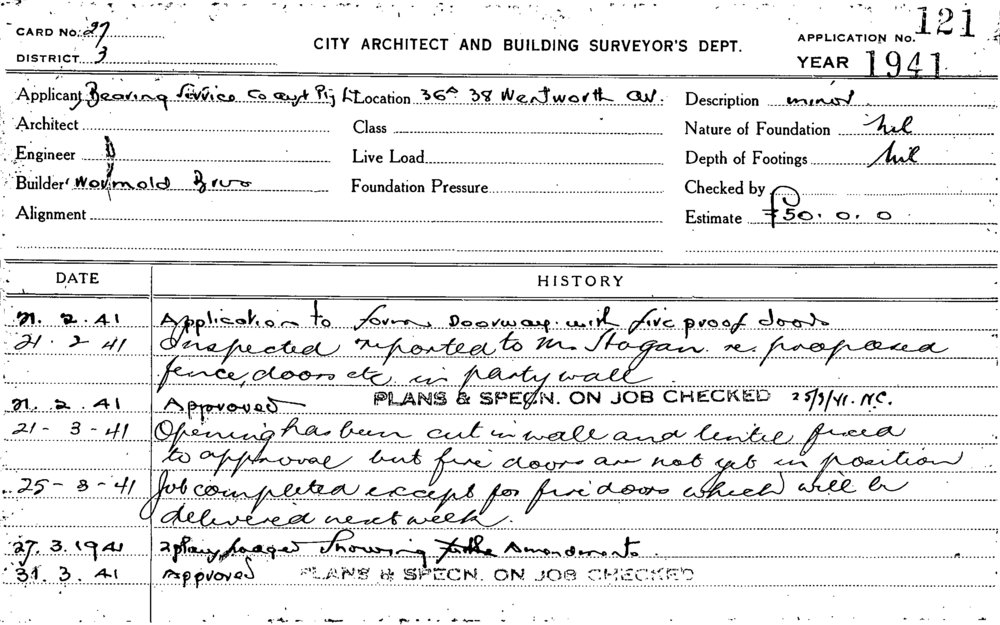 CARD NO. 27
DISTRICT 3
CITY ARCHITECT AND BUILDING SURVEYOR'S DEPT.
APPLICATION NO. 121
YEAR 1941
Applicant Bearing Service Co Pty Lt Location 36A 38 Wentworth Av. Description minor
Architect Class Nature of Foundation Nil
Engineer Live Load Depth of Footings Nil
Builder Wormald Bros Foundation Pressure Checked by
Alignment Estimate £50. 0. 0
DATE HISTORY
21. 2. 41 Application to form Doorway with fire proof doors
21. 2 41 Inspected reported to Mr Hogan re. proposed
fence, doors etc in party wall
21. 2. 41 Approved PLANS & SPECN. ON JOB CHECKED 25/3/41. N.C.
21 - 3 - 41 Opening has been cut in wall and lintel fixed
to approval but fire doors are not yet in position
25 - 3 - 41 Job completed except for fire doors which will be
delivered next week.
27. 3. 1941 2 plans lodged Showing Amendments
31. 3. 41 Approved PLANS & SPECN. ON JOB CHECKED